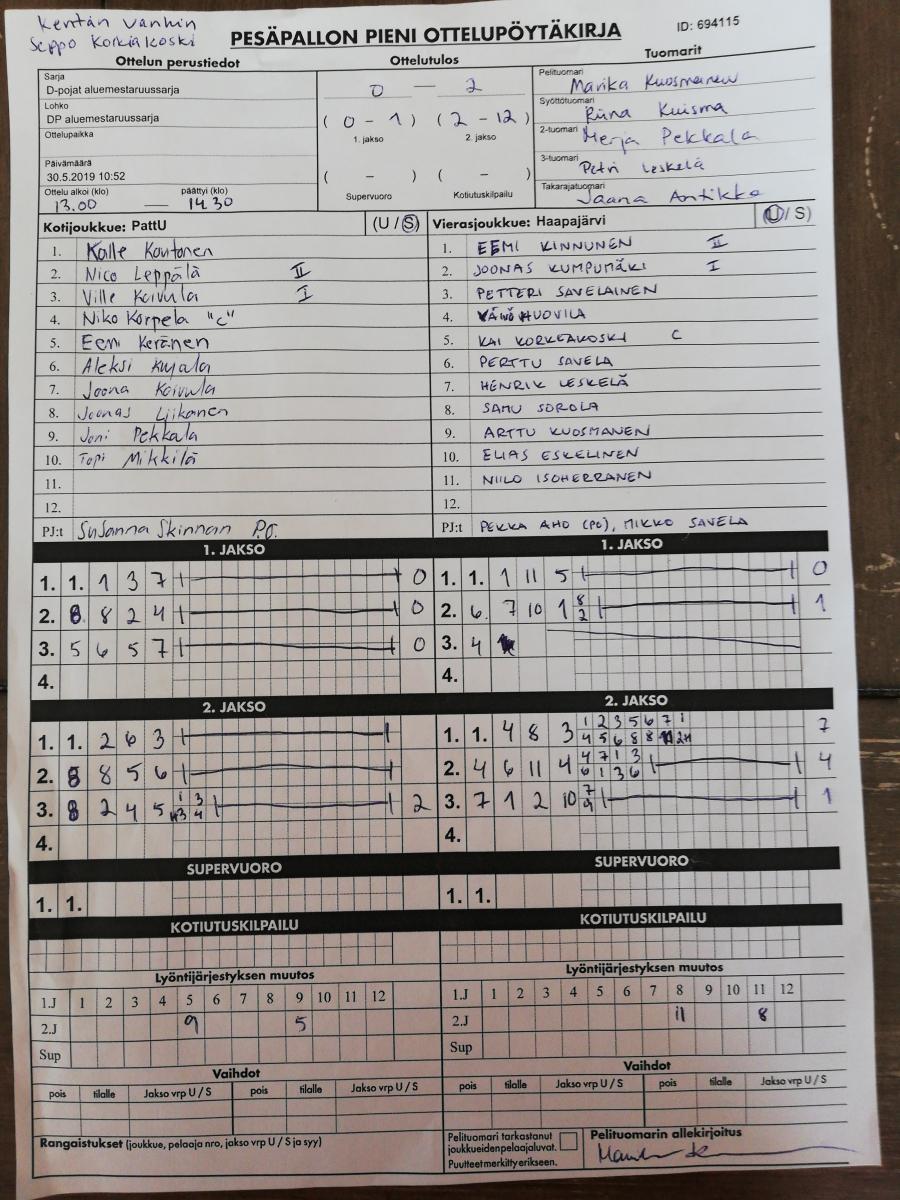 Kentän vanhin
Seppo Korkiakoski
PESÄPALLON PIENI OTTELUPÖYTÄKIRJA
ID: 694115
Ottelun perustiedot
Sarja
D-pojat aluemestaruussarja
Lohko
DP aluemestaruussarja
Ottelupaikka
Päivämäärä
30.5.2019 10:52
Ottelu alkoi (klo) päättyi (klo)
13.00 — 14.30
Ottelutulos
0 — 2
( 0 - 1 ) ( 2 - 12 )
1. jakso 2. jakso
( - ) ( - )
Supervuoro Kotiutuskilpailu
Tuomarit
Pelituomari Marika Kuosmanen
Syöttötuomari Riina Kuisma
2-tuomari Merja Pekkala
3-tuomari Petri Leskelä
Takarajatuomari Jaana Antikka
Kotijoukkue: PattU (U / S)
1. Kalle Kontonen
2. Nico Leppälä II
3. Ville Koivula I
4. Niko Korpela "C"
5. Eemi Keränen
6. Aleksi Kujala
7. Joona Koivula
8. Joonas Liikanen
9. Joni Pekkala
10. Topi Mikkilä
11.
12.
PJ:t Susanna Skinnari P.J.
Vierasjoukkue: Haapajärvi (U / S)
1. EEMI KINNUNEN II
2. JOONAS KUMPUMÄKI I
3. PETTERI SAVELAINEN
4. VÄINÖ HUOVILA
5. KAI KORKEAKOSKI C
6. PERTTU SAVELA
7. HENRIK LESKELÄ
8. SAMU SOROLA
9. ARTTU KUOSMANEN
10. ELIAS ESKELINEN
11. NIILO ISOHERRANEN
12.
PJ:t PEKKA AHO (PJ), MIKKO SAVELA
1. JAKSO
1. 1. 1 3 7 0
2. 8 8 2 4 0
3. 5 6 5 7 0
4.
1. JAKSO
1. 1. 1 11 5 0
2. 6. 7 10 1 8 1
2
3. 4
4.
2. JAKSO
1. 1. 2 6 3
2. 8 8 5 6
3. 8 2 4 5 1 3 2
3 4
4.
2. JAKSO
1. 1. 4 8 3 1 2 3 5 6 7 1 7
4 5 6 8 8
2. 4 6 11 4 4 7 1 3 4
6 1 3 6
3. 7 1 2 10 7 1
9
4.
SUPERVUORO
1. 1.
SUPERVUORO
1. 1.
KOTIUTUSKILPAILU
KOTIUTUSKILPAILU
Lyöntijärjestyksen muutos
1.J 1 2 3 4 5 6 7 8 9 10 11 12
2.J 9 5
Sup
Lyöntijärjestyksen muutos
1.J 1 2 3 4 5 6 7 8 9 10 11 12
2.J 11 8
Sup
Vaihdot
pois tilalle Jakso vrp U / S pois tilalle Jakso vrp U / S
Vaihdot
pois tilalle Jakso vrp U / S pois tilalle Jakso vrp U / S
Rangaistukset (joukkue, pelaaja nro, jakso vrp U / S ja syy)
Pelituomari tarkastanut
joukkueidenpelaajaluvat.
Puutteetmerkittyerikseen.
Pelituomarin allekirjoitus